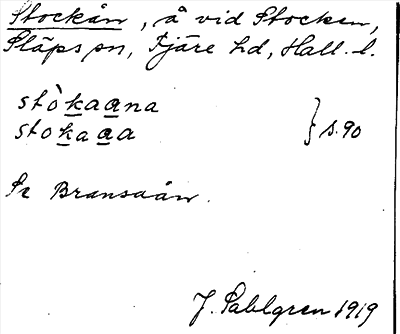 Stockån, å vid Stocken,
Släps sn, Fjäre hd, Hall. l.
stòkaana
stokaaa } s. 90
Se Bransaån.
J. Sahlgren 1919